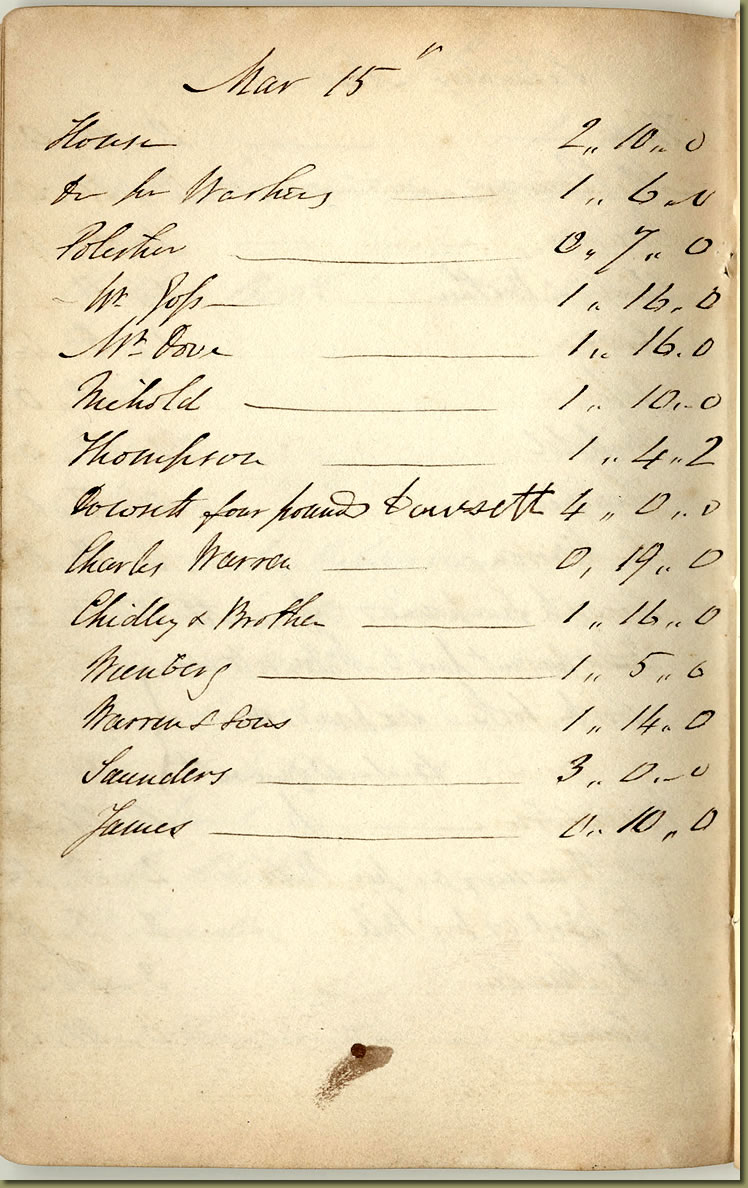 Mar 15"
House 2,, 10,, 0
Do for Washing 1,, 6,, 0
0,, 7,, 0
Mr Goss 1,, 16,, 0
Mr Dove 1,, 16. 0
Nichold 1,, 10,, 0
Thompson 1,, 4,, 2
Dowsett four pounds Dowsett 4,, 0,, 0
Charles Warren 0, 19,, 0
Chidley & Brother 1,, 16,, 0
1,, 5,, 0
Warren & Sons 1,, 14,, 0
Saunders 3,, 0,, 0
James 0,, 10,, 0